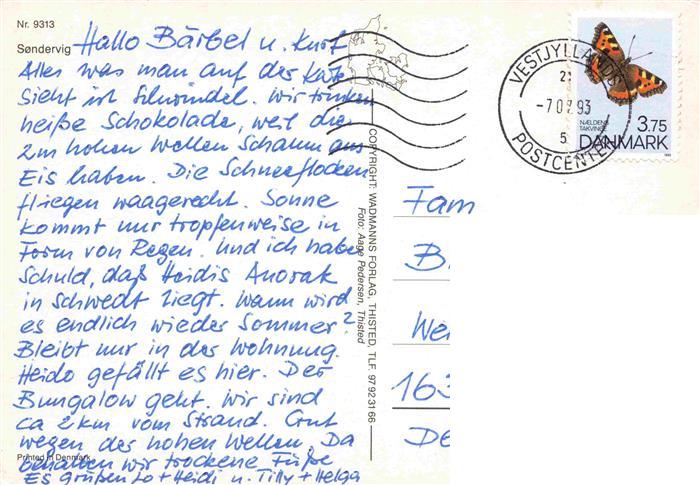 Nr. 9313
Søndervig
Hallo Bärbel u. Kurt
Alles was man auf der Karte
sieht ist Schwindel. Wir trinken
heiße Schokolade, weil die
2m hohen Wellen Schaum aus
Eis haben. Die Schneeflocken
fliegen waagerecht. Sonne
kommt nur tropfenweise in
Form von Regen. Und ich habe
Schuld, daß Heidis Anorak
in Schwedt liegt. Wann wird
es endlich wieder Sommer?
Bleibt nur in der Wohnung.
Heido gefällt es hier. Der
Bungalow geht. Wir sind
ca 2km vom Strand. Gut
wegen der hohen Wellen. Da
behalten wir trockene Füße
Es grüßen Lo + Heidi u. Tilly + Helga
Printed in Denmark
COPYRIGHT: WADMANNS FORLAG, THISTED, TLF. 97 92 31 66
Foto: Aage Pedersen, Thisted
VESTJYLLANDS
21
-7 07 93
5
POSTCENTER
NÆLDENS
TAKVINGE
3.75
DANMARK
Fam
B
We
163
De